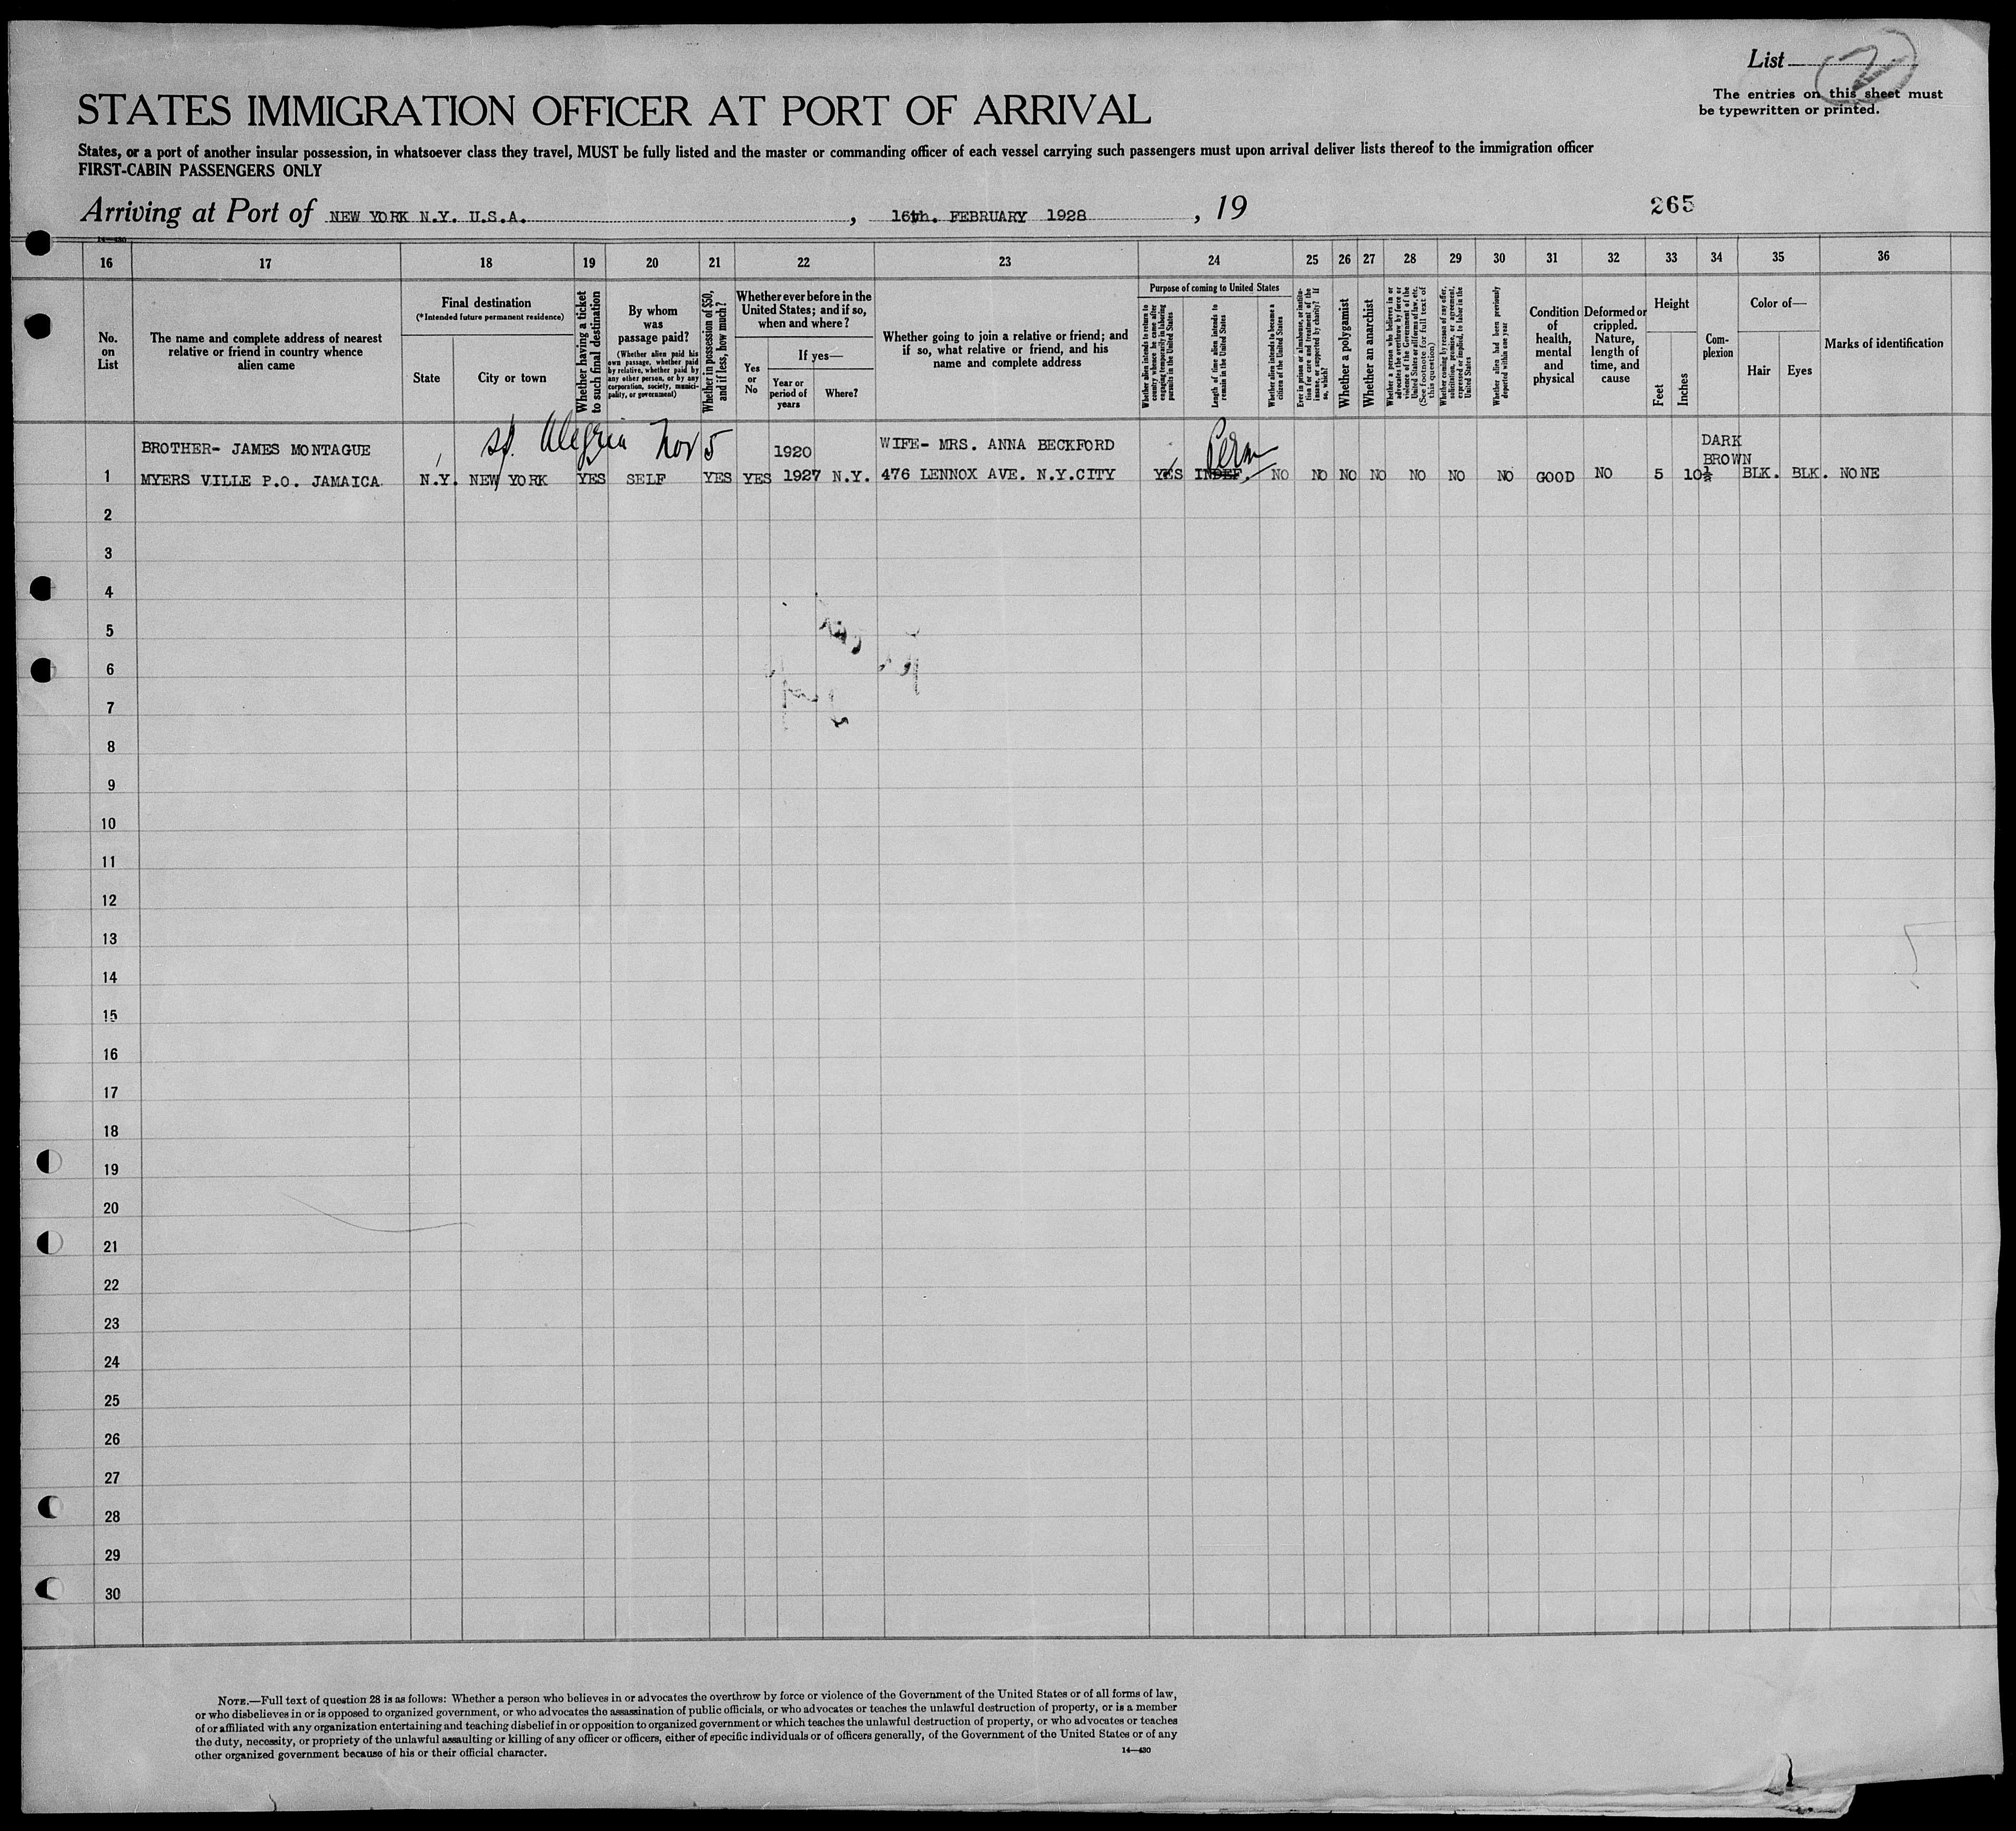 List 2
The entries on this sheet must
be typewritten or printed.
STATES IMMIGRATION OFFICER AT PORT OF ARRIVAL
States, or a port of another insular possession, in whatsoever class they travel, MUST be fully listed and the master or commanding officer of each vessel carrying such passengers must upon arrival deliver lists thereof to the immigration officer
FIRST-CABIN PASSENGERS ONLY
Arriving at Port of NEW YORK N.Y. U.S.A. , 16th. FEBRUARY 1928 , 19
265
14-430
16 17 18 19 20 21 22 23 24 25 26 27 28 29 30 31 32 33 34 35 36
No.
on
List
The name and complete address of nearest
relative or friend in country whence
alien came
Final destination
(*Intended future permanent residence)
State
City or town
Whether having a ticket
to such final destination
By whom
was
passage paid?
(Whether alien paid his
own passage, whether paid
by relative, whether paid by
any other person, or by any
corporation, society, munici-
pality, or government)
Whether in possession of $50,
and if less, how much?
Whether ever before in the
United States; and if so,
when and where?
Yes
or
No
If yes—
Year or
period of
years
Where?
Whether going to join a relative or friend; and
if so, what relative or friend, and his
name and complete address
Purpose of coming to United States
Whether alien intends to return to
country whence he came after
engaging temporarily in laboring
pursuits in the United States
Length of time alien intends to
remain in the United States
Whether alien intends to become a
citizen of the United States
Ever in prison or almshouse, or institu-
tion for care and treatment of the
insane, or supported by charity? If
so, which?
Whether a polygamist
Whether an anarchist
Whether a person who believes in or
advocates the overthrow by force or
violence of the Government of the
United States or all forms of law, etc.
(See footnote for full text of
this question)
Whether coming by reason of any offer,
solicitation, promise, or agreement,
expressed or implied, to labor in the
United States
Whether alien had been previously
deported within one year
Condition
of
health,
mental
and
physical
Deformed or
crippled.
Nature,
length of
time, and
cause
Height
Feet
Inches
Com-
plexion
Color of—
Hair
Eyes
Marks of identification
ss. Alegria Nov 5
Perm
BROTHER- JAMES MONTAGUE 1920 WIFE- MRS. ANNA BECKFORD DARK
BROWN
1 MYERS VILLE P.O. JAMAICA. N.Y. NEW YORK YES SELF YES YES 1927 N.Y. 476 LENNOX AVE. N.Y.CITY YES INDEF. NO NO NO NO NO NO NO GOOD NO 5 10½ BLK. BLK. NONE
2
3
4
5
6
7
8
9
10
11
12
13
14
15
16
17
18
19
20
21
22
23
24
25
26
27
28
29
30
NOTE.—Full text of question 28 is as follows: Whether a person who believes in or advocates the overthrow by force or violence of the Government of the United States or of all forms of law,
or who disbelieves in or is opposed to organized government, or who advocates the assassination of public officials, or who advocates or teaches the unlawful destruction of property, or is a member
of or affiliated with any organization entertaining and teaching disbelief in or opposition to organized government or which teaches the unlawful destruction of property, or who advocates or teaches
the duty, necessity, or propriety of the unlawful assaulting or killing of any officer or officers, either of specific individuals or of officers generally, of the Government of the United States or of any
other organized government because of his or their official character.
14—430